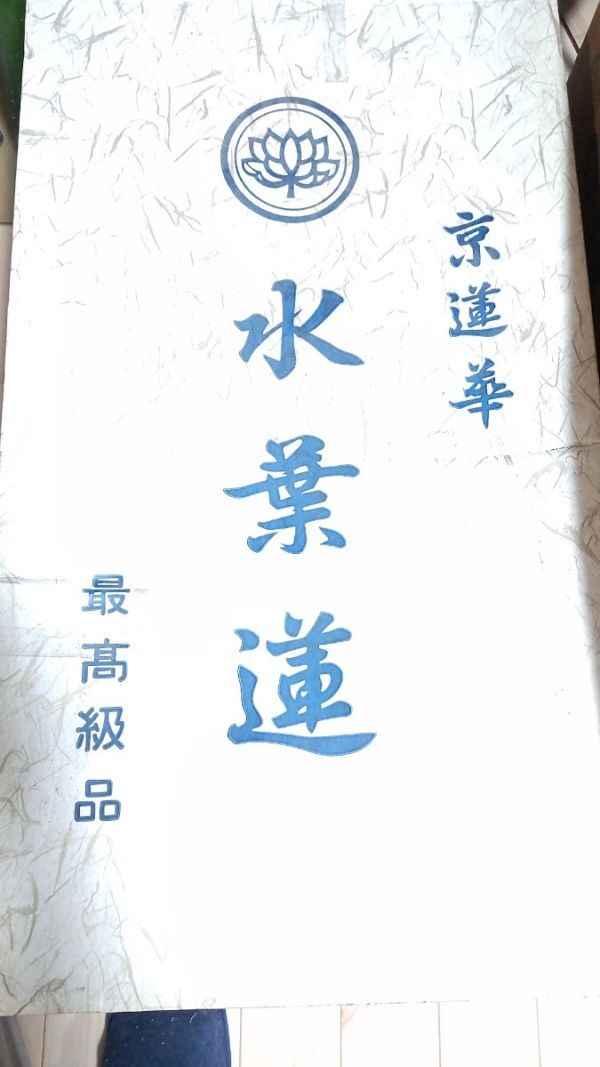 京蓮華
水葉蓮
最髙級品